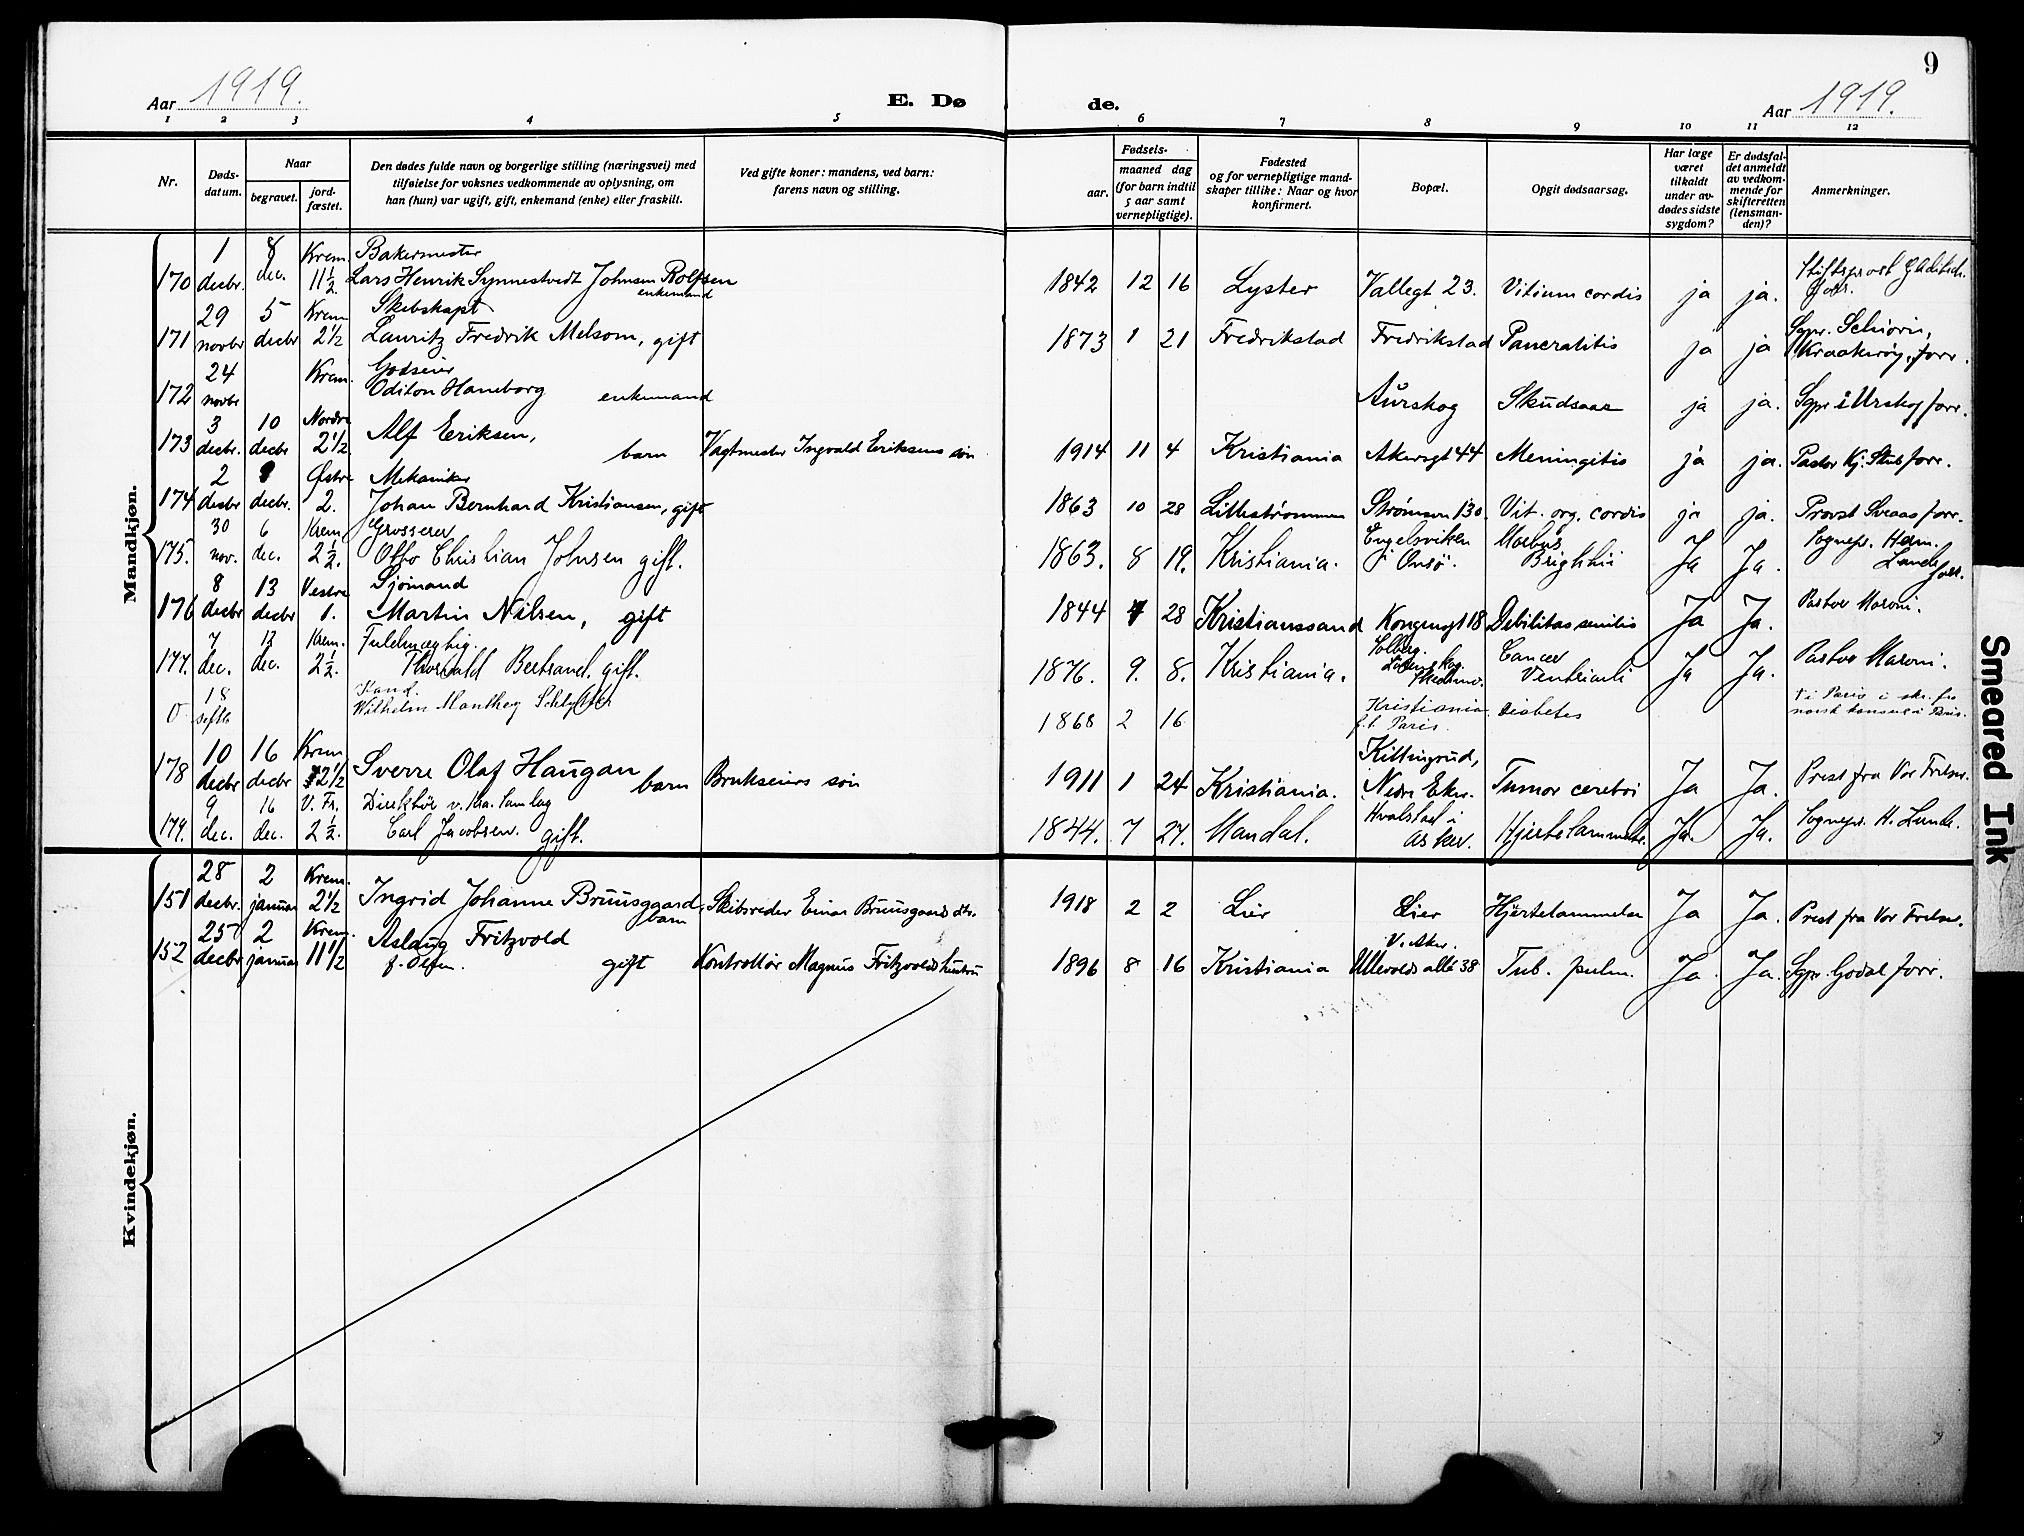 9
Aar 1919.
E. Døde.
Aar 1919.
1 2 3 4 5 6 7 8 9 10 11 12
Nr.
Døds-datum.
Naar
begravet.
jord-fæstet.
Den dødes fulde navn og borgerlige stilling (næringsvei) med
tilføielse for voksnes vedkommende av oplysning, om
han (hun) var ugift, gift, enkemand (enke) eller fraskilt.
Ved gifte koner: mandens, ved barn:
farens navn og stilling.
Fødsels-
aar.
maaned dag
(for barn indtil
5 aar samt
vernepligtige).
Fødested
og for vernepligtige mand-
skaper tillike: Naar og hvor
konfirmert.
Bopæl.
Opgit dødsaarsag.
Har læge
været
tilkaldt
under av-
dødes sidste
sygdom?
Er dødsfal-
det anmeldt
av vedkom-
mende for
skifteretten
(lensman-
den)?
Anmerkninger.
Mandkjøn.
1 8 Krem. Bakermester
170 decbr. dec. 11½. Lars Henrik Synnestvedt Johnsen Rolfsen enkemand 1842 12 16 Lyster Vallegt 23. Vitium cordis ja ja. Stiftsprost Gladtsch. forr.
29 5 Krem Skibskapt
171 novbr decbr 2½ Lauritz Fredrik Melsom, gift 1873 1 21 Fredrikstad Fredrikstad Pancratitis ja ja Sgpr. Schiørn, Kraakerøy, forr.
24 Krem. Godseier
172 novbr Oditon Haneborg enkemand Aurskog Skudsaar ja ja. Sgpr i Urskog forr.
3 10 Nordre
173 decbr. decbr 2½. Alf Eriksen, barn Vagtmester Ingvald Eriksens søn 1914 11 4 Kristiania Akersgt 44 Meningitis ja ja. Pastor Kj. Stub forr.
2 9 Østre Mekaniker
174 decbr decbr. 2. Johan Bernhard Kristiansen, gift 1863 10 28 Lillestrømmen Strømsvn 130. Vit. org. cordis ja ja. Provst Sveaas forr.
30 6 Krem Grosserer
175. nov. dec. 2½. Otto Christian Johnsen gift. 1863. 8 19. Kristiania. Engelsviken i Onsø. Morbus Brightii Ja Ja. Sognepr. Herm. Lunde forr.
8 13 Vestre Sjømand
176 decbr decbr 1. Martin Nilsen, gift 1844 4 28 Kristianssand Kongensgt 18 Debilitas senilis Ja Ja. Pastor Maroni.
7 13 Krem. Fuldmægtig.
177. dec. dec. 2½. Thorvald Bertrand. gift. 1876. 9. 8. Kristiania. Solberg. Lørenskog. Skedsmo. Cancer Ventriculi Ja Ja. Pastor Maroni.
18 Kand.
0 septb Wilhelm Manthey Schlytter 1868 2 16 Kristiania f.t. Paris. Diabetes i Paris i skr. fra norsk konsul i Paris.
10 16 Krem
178 decbr decbr 2½ Sverre Olaf Haugan barn Brukseiers søn 1911 1 24 Kristiania. Killingrud, Nedre Eker. Tumor cerebri Ja Ja. Prest fra Vor Frelser.
9 16 V. Fr. Direktør v. Kra. Samlag
179. dec. dec. 2½. Carl Jacobsen. gift. 1844. 7 27. Mandal. Hvalstad i Asker. Hjertelammelse. Ja. Ja. Sognepr. H. Lunde.
Kvindekjøn.
28 2 Krem.
151 decbr. januar 2½ Ingrid Johanne Bruusgaard, barn Skibsreder Einar Bruusgaards dtr. 1918 2 2 Lier Lier Hjertelammelse Ja Ja. Prest fra Vor Frelser.
25 2 Krem.
152 decbr januar 11½ Aslaug Fritzvold f. Olsen. gift Kontrollør Magnus Fritzvolds hustru 1896 8 16 Kristiania V. Aker. Ullevolds allé 38 Tub. pulm. Ja. Ja. Sgpr. Godal forr.
Smeared Ink